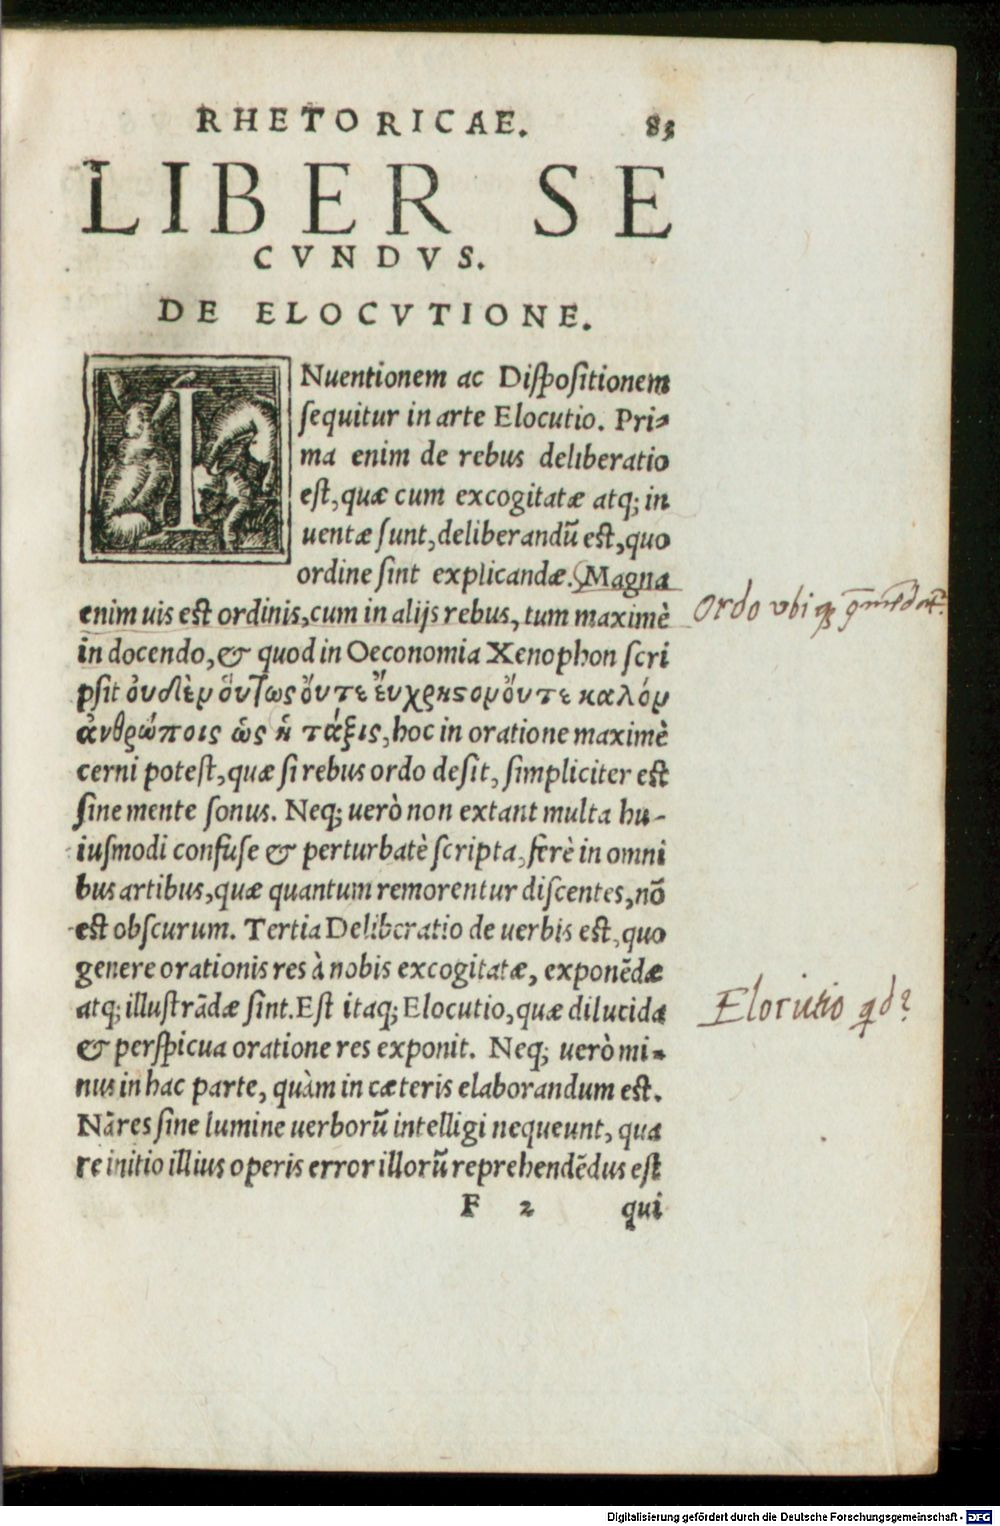 RHETORICAE. 83
LIBER SE
CVNDVS.
DE ELOCVTIONE.
INuentionem ac Dispositionem
sequitur in arte Elocutio. Pri-
ma enim de rebus deliberatio
est, quæ cum excogitatæ atq; in
uentæ sunt, deliberandũ est, quo
ordine sint explicandæ. Magna
enim uis est ordinis, cum in alijs rebus, tum maximè
Ordo ubiq;
in docendo, & quod in Oeconomia Xenophon scri
psit ὀυδὲν ὅυτως ὄυτε ἔυχρηςον ὄυτε καλόν
ἀνθρώποις ὡς ἡ τάξις, hoc in oratione maximè
cerni potest, quæ si rebus ordo desit, simpliciter est
sine mente sonus. Neq; uerò non extant multa hu-
iusmodi confuse & perturbatè scripta, ferè in omni
bus artibus, quæ quantum remorentur discentes, nõ
est obscurum. Tertia Deliberatio de uerbis est, quo
genere orationis res à nobis excogitatæ, exponẽdæ
atq; illustrãdæ sint. Est itaq; Elocutio, quæ dilucida
Elocutio qd?
& perspicua oratione res exponit. Neq; uerò mi-
nus in hac parte, quàm in cæteris elaborandum est.
Nã res sine lumine uerborũ intelligi nequeunt, qua
re initio illius operis error illorũ reprehendẽdus est
F 2 qui
Digitalisierung gefördert durch die Deutsche Forschungsgemeinschaft - DFG